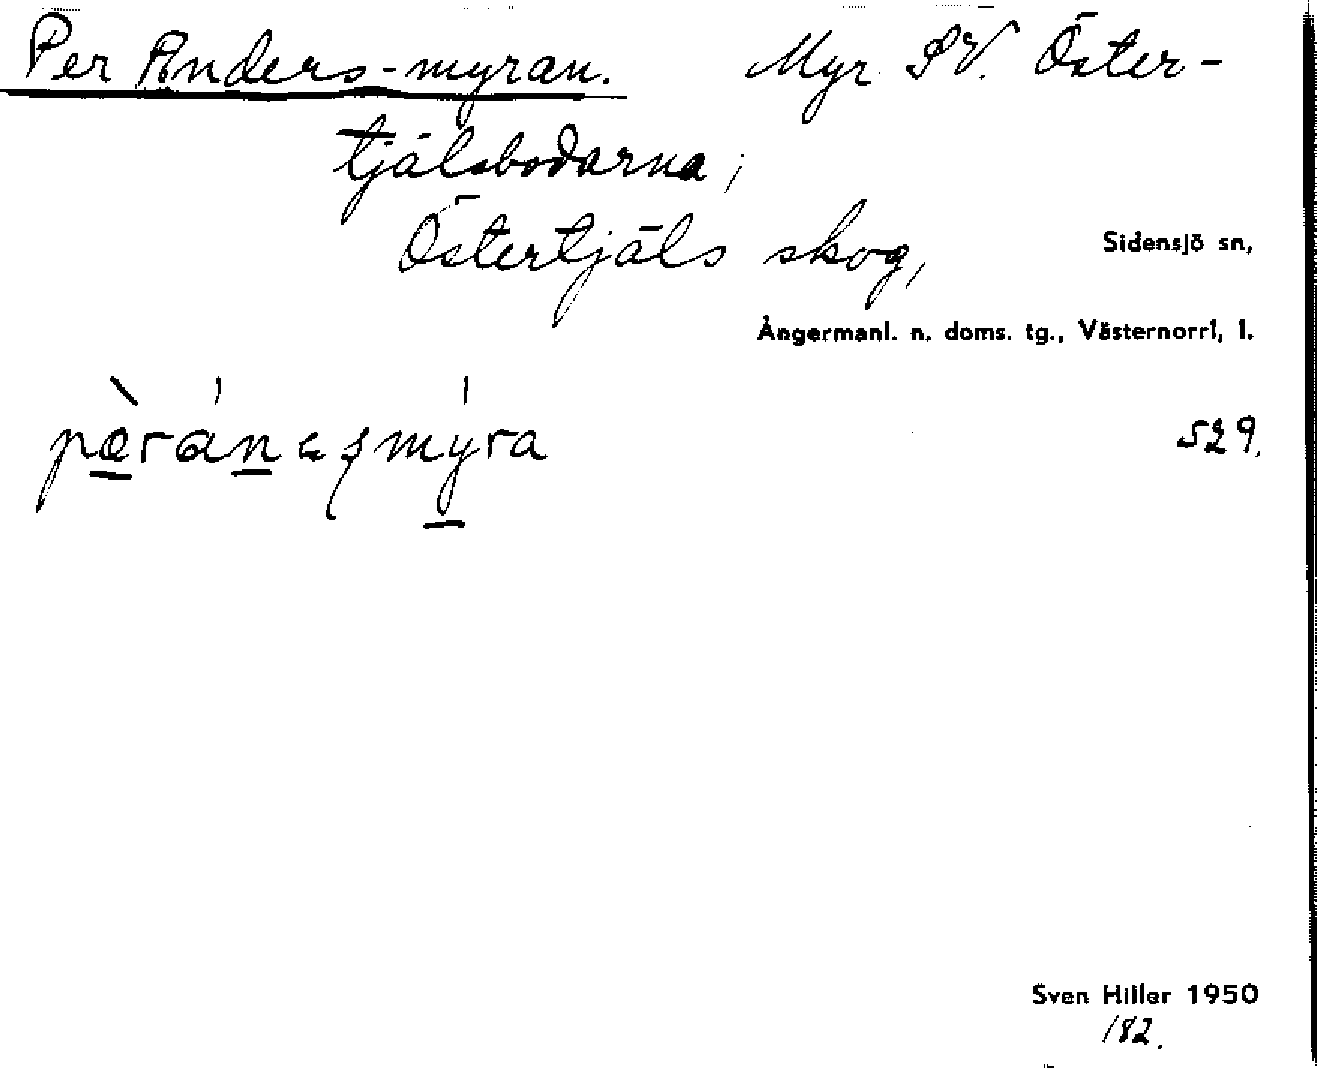 Per Anders-myran. Myr SV. Öster-
tjälsbodarna,
Östertjäls skog, Sidensjö sn,
Ångermanl. n. doms. tg., Västernorrl. l.
529.
Sven Hiller 1950
182.